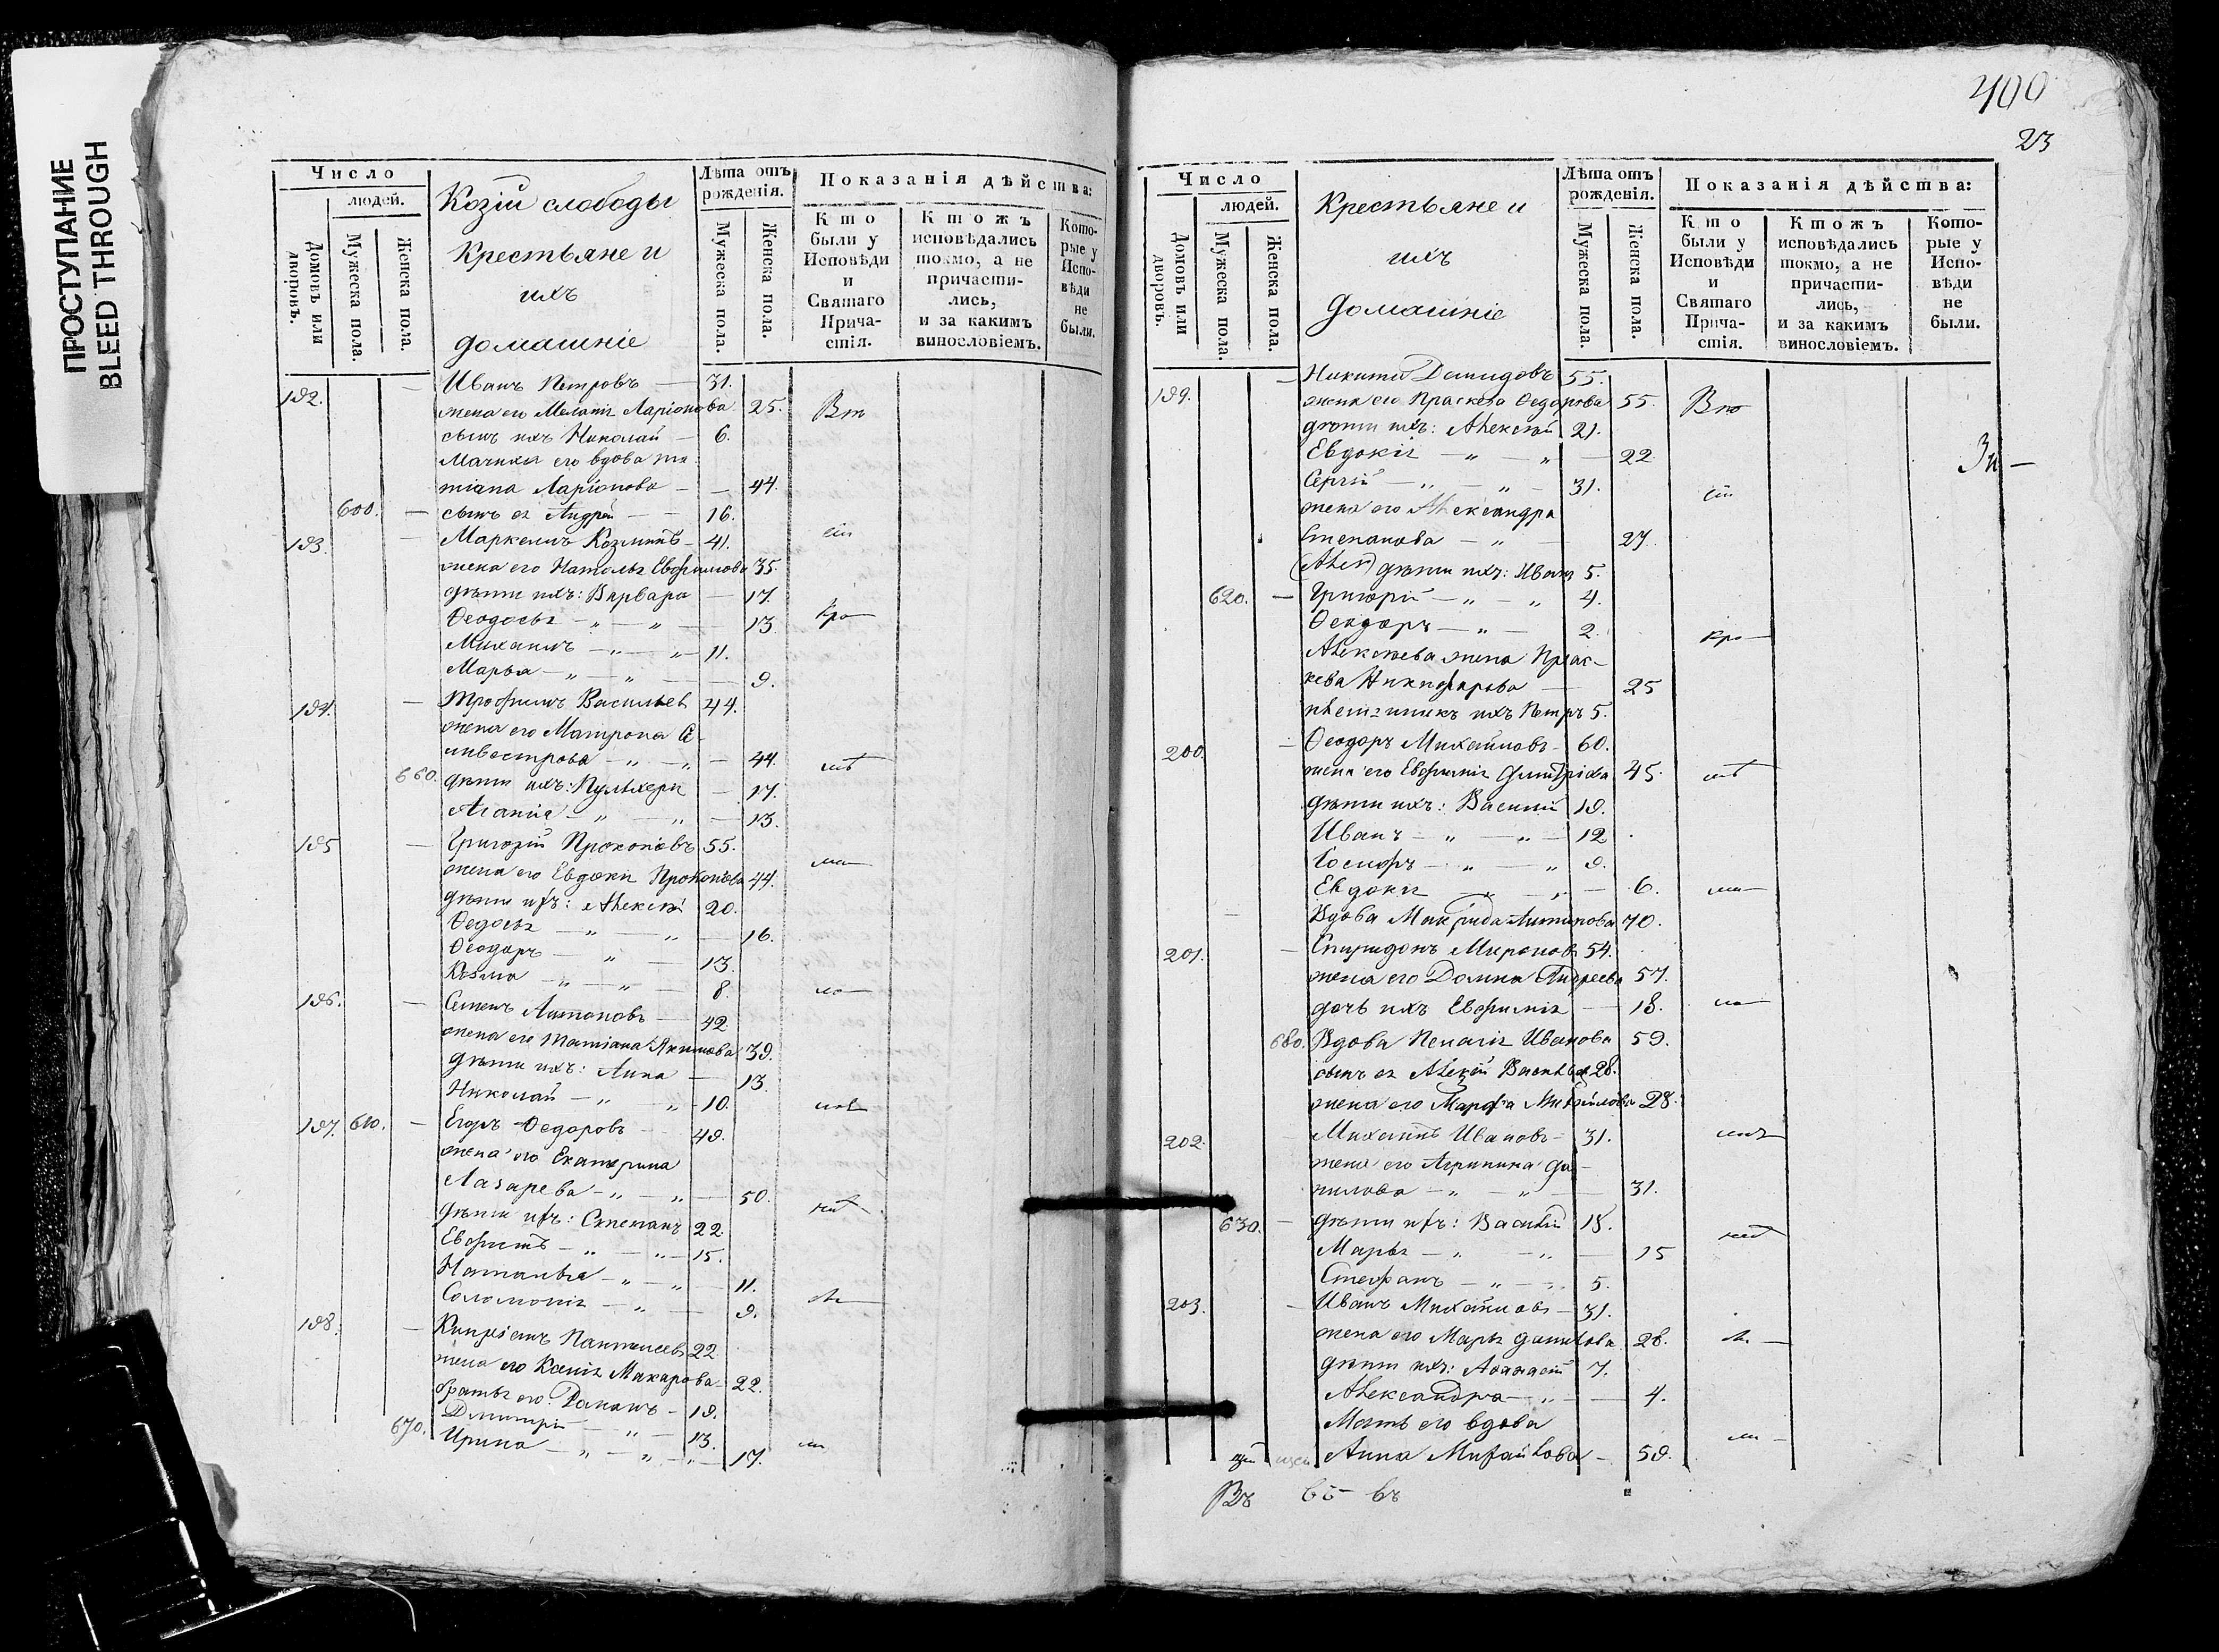 ПРОСТУПАНИЕ
BLEED THROUGH
Число
людей.
Домовъ или дворовъ.
Мужеска пола.
Женска пола.
Козій слободы
Крестьяне и
ихъ
домашніе
Лѣта отъ рожденія.
Мужеска пола.
Женска пола.
Показанія дѣйства:
Кто были у Исповѣди и Святаго Прича-стія.
Ктожъ исповѣдались токмо, а не причасти-лись, и за какимъ винословіемъ.
Кото-рые у Испо-вѣди не были.
192. — Иванъ Петровъ — 31.
жена его Меланіѧ Ларіонова 25.
сынъ ихъ Николай — 6.
Мачиха его вдова та
тіана Ларіонова — — 44.
600. — сынъ еѧ Андрей — — 16.
193. — Маркеллъ Козминъ — 41.
жена его Натальѧ Евфимова 35.
дѣти ихъ: Варвара — 17.
Ѳеодосьѧ — „ — „ — 13.
Михаилъ — „ — „ — 11.
Марья — „ — „ — 9.
194. — Трофимъ Васильев 44.
жена его Матрона Се-
ливестрова — „ — „ — 44.
660. дѣти ихъ: Пульхері — 17.
Агапіа — „ — „ — 13.
195 — Григорій Прокопіевъ 55.
жена его Евдокіѧ Прокопьева 44.
дѣти ихъ: Алексѣй 20.
Ѳедосьѧ — „ — „ — 16.
Ѳеодоръ — „ — 13.
Козма — „ — „ — 8.
196. — Семенъ Антоновъ — 42.
жена его татіана Якимова 39.
дѣти ихъ: Анна — 13.
Николай — „ — „ — 10.
197. 610. — Егоръ Ѳедоровъ — 49.
жена его Екатерина
Лазарева — „ — „ — 50.
дѣти ихъ: Степанъ 22.
Евфимъ — „ — „ — 15.
Наталья — „ — „ — 11.
Соломоніѧ — „ — 9.
198. — Кипріанъ Пантелеев 22
жена его Ксеніѧ Макарова 22.
братьѧ его: Романъ — 19.
Димитрі — „ — 13.
670. Ирина — „ — „ — 17.
400
23
Число
людей.
Домовъ или дворовъ.
Мужеска пола.
Женска пола.
Крестьяне и
ихъ
домашніе
Лѣта отъ рожденія.
Мужеска пола.
Женска пола.
Показанія дѣйства:
Кто были у Исповѣди и Святаго Прича-стія.
Ктожъ исповѣдались токмо, а не причасти-лись, и за какимъ винословіемъ.
Кото-рые у Испо-вѣди не были.
199. — Никита Демидовъ 55.
жена его Праскева Ѳедорова 55.
дѣти ихъ: Алексѣй 21.
Евдокіѧ — „ — „ — 22
Сергій — „ — „ — 31.
жена его Александра
Степанова — „ — 27.
(Алек) дѣти ихъ: Иванъ 5.
620. — Григорій — „ — „ 4.
Ѳеодоръ — „ — 2.
Алексѣева жена Прас-
кева Никифорова — 25
племѧнникъ ихъ Петръ 5.
200. — Ѳеодоръ Михайловъ — 60.
жена его Евфиміѧ Дмитріева 45.
дѣти ихъ: Василій 19.
Иванъ — „ — „ — 12
Іосифъ — „ — „ 9.
Евдокіѧ — „ — „ — 6.
Вдова Макрида Антипова 70.
201. — Спиридонъ Миронов 54.
жена его Домна Андреева 57.
дочь ихъ Евфиміѧ — 18.
680. Вдова Пелагіѧ Иванова 59.
сынъ еѧ Алексѣй Васильев 28.
жена его Марфа Михайлова 28.
202. Михаилъ Ивановъ — 31.
жена его Агрипина Да-
нилова — „ — „ — 31.
630. — дѣти ихъ: Василій 18.
Марьѧ — „ — „ — 15
Стефанъ — „ — 5.
203. — Иванъ Михайловъ — 31.
жена его Марьѧ Данилова 28.
дѣти ихъ: Аѳанасій 7.
Александра — „ — 4.
Мать его вдова
Анна Михайлова — 59.